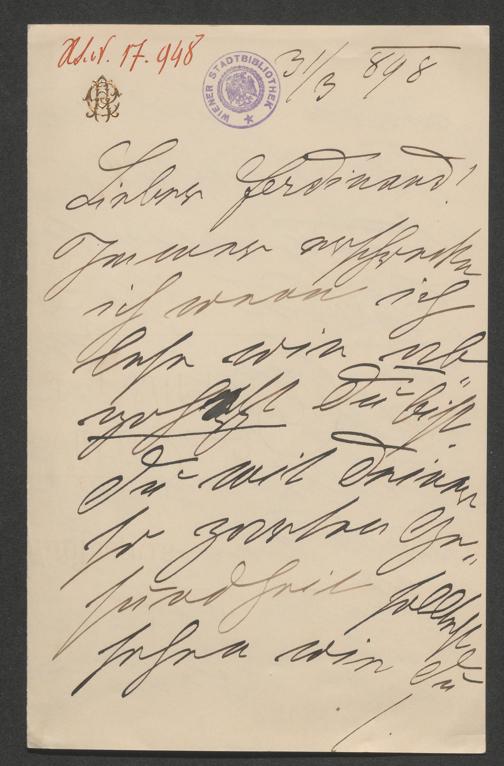 H.I.N. 17.948
WIENER STADTBIBLIOTHEK
31/3 898
Lieber Ferdinand!
Immer erschrecke
ich wenn ich
lese wie
Du bist
Du mit Deiner
so zarten Ge„
sundheit solltest
sehen wie Du